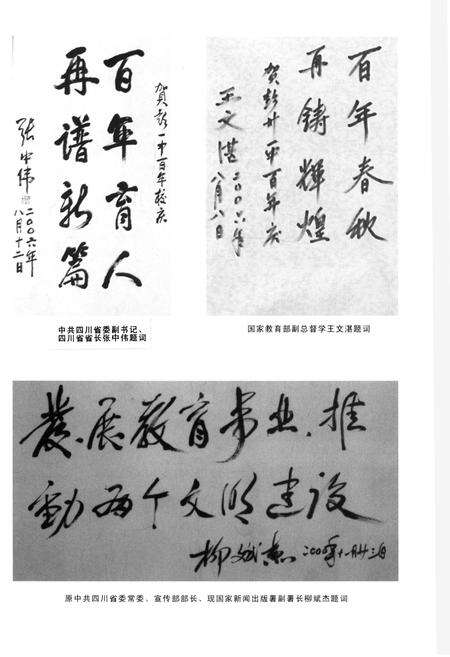 賀彭一中百年校庆
百年育人
再譜新篇
张中伟
二〇〇六年
八月十二日
中共四川省委副书记、
四川省省长张中伟题词
百年春秋
再铸輝煌
百年庆
王文湛
二〇〇六年
八月八日
国家教育部副总督学王文湛题词
發展教育事业,推
動两个文明建设
柳斌杰
原中共四川省委常委、宣传部部长、现国家新闻出版署副署长柳斌杰题词